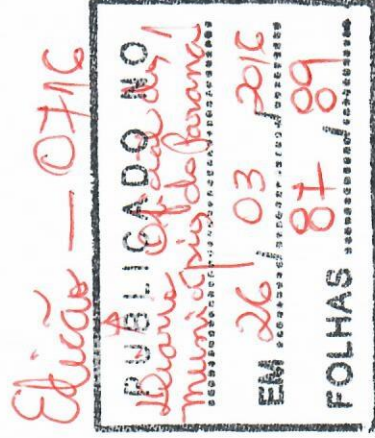 Edição — 0716
PUBLICADO NO
Diário Oficial dos
Municípios do Paraná
EM 26 / 03 / 2016
FOLHAS 87 / 89